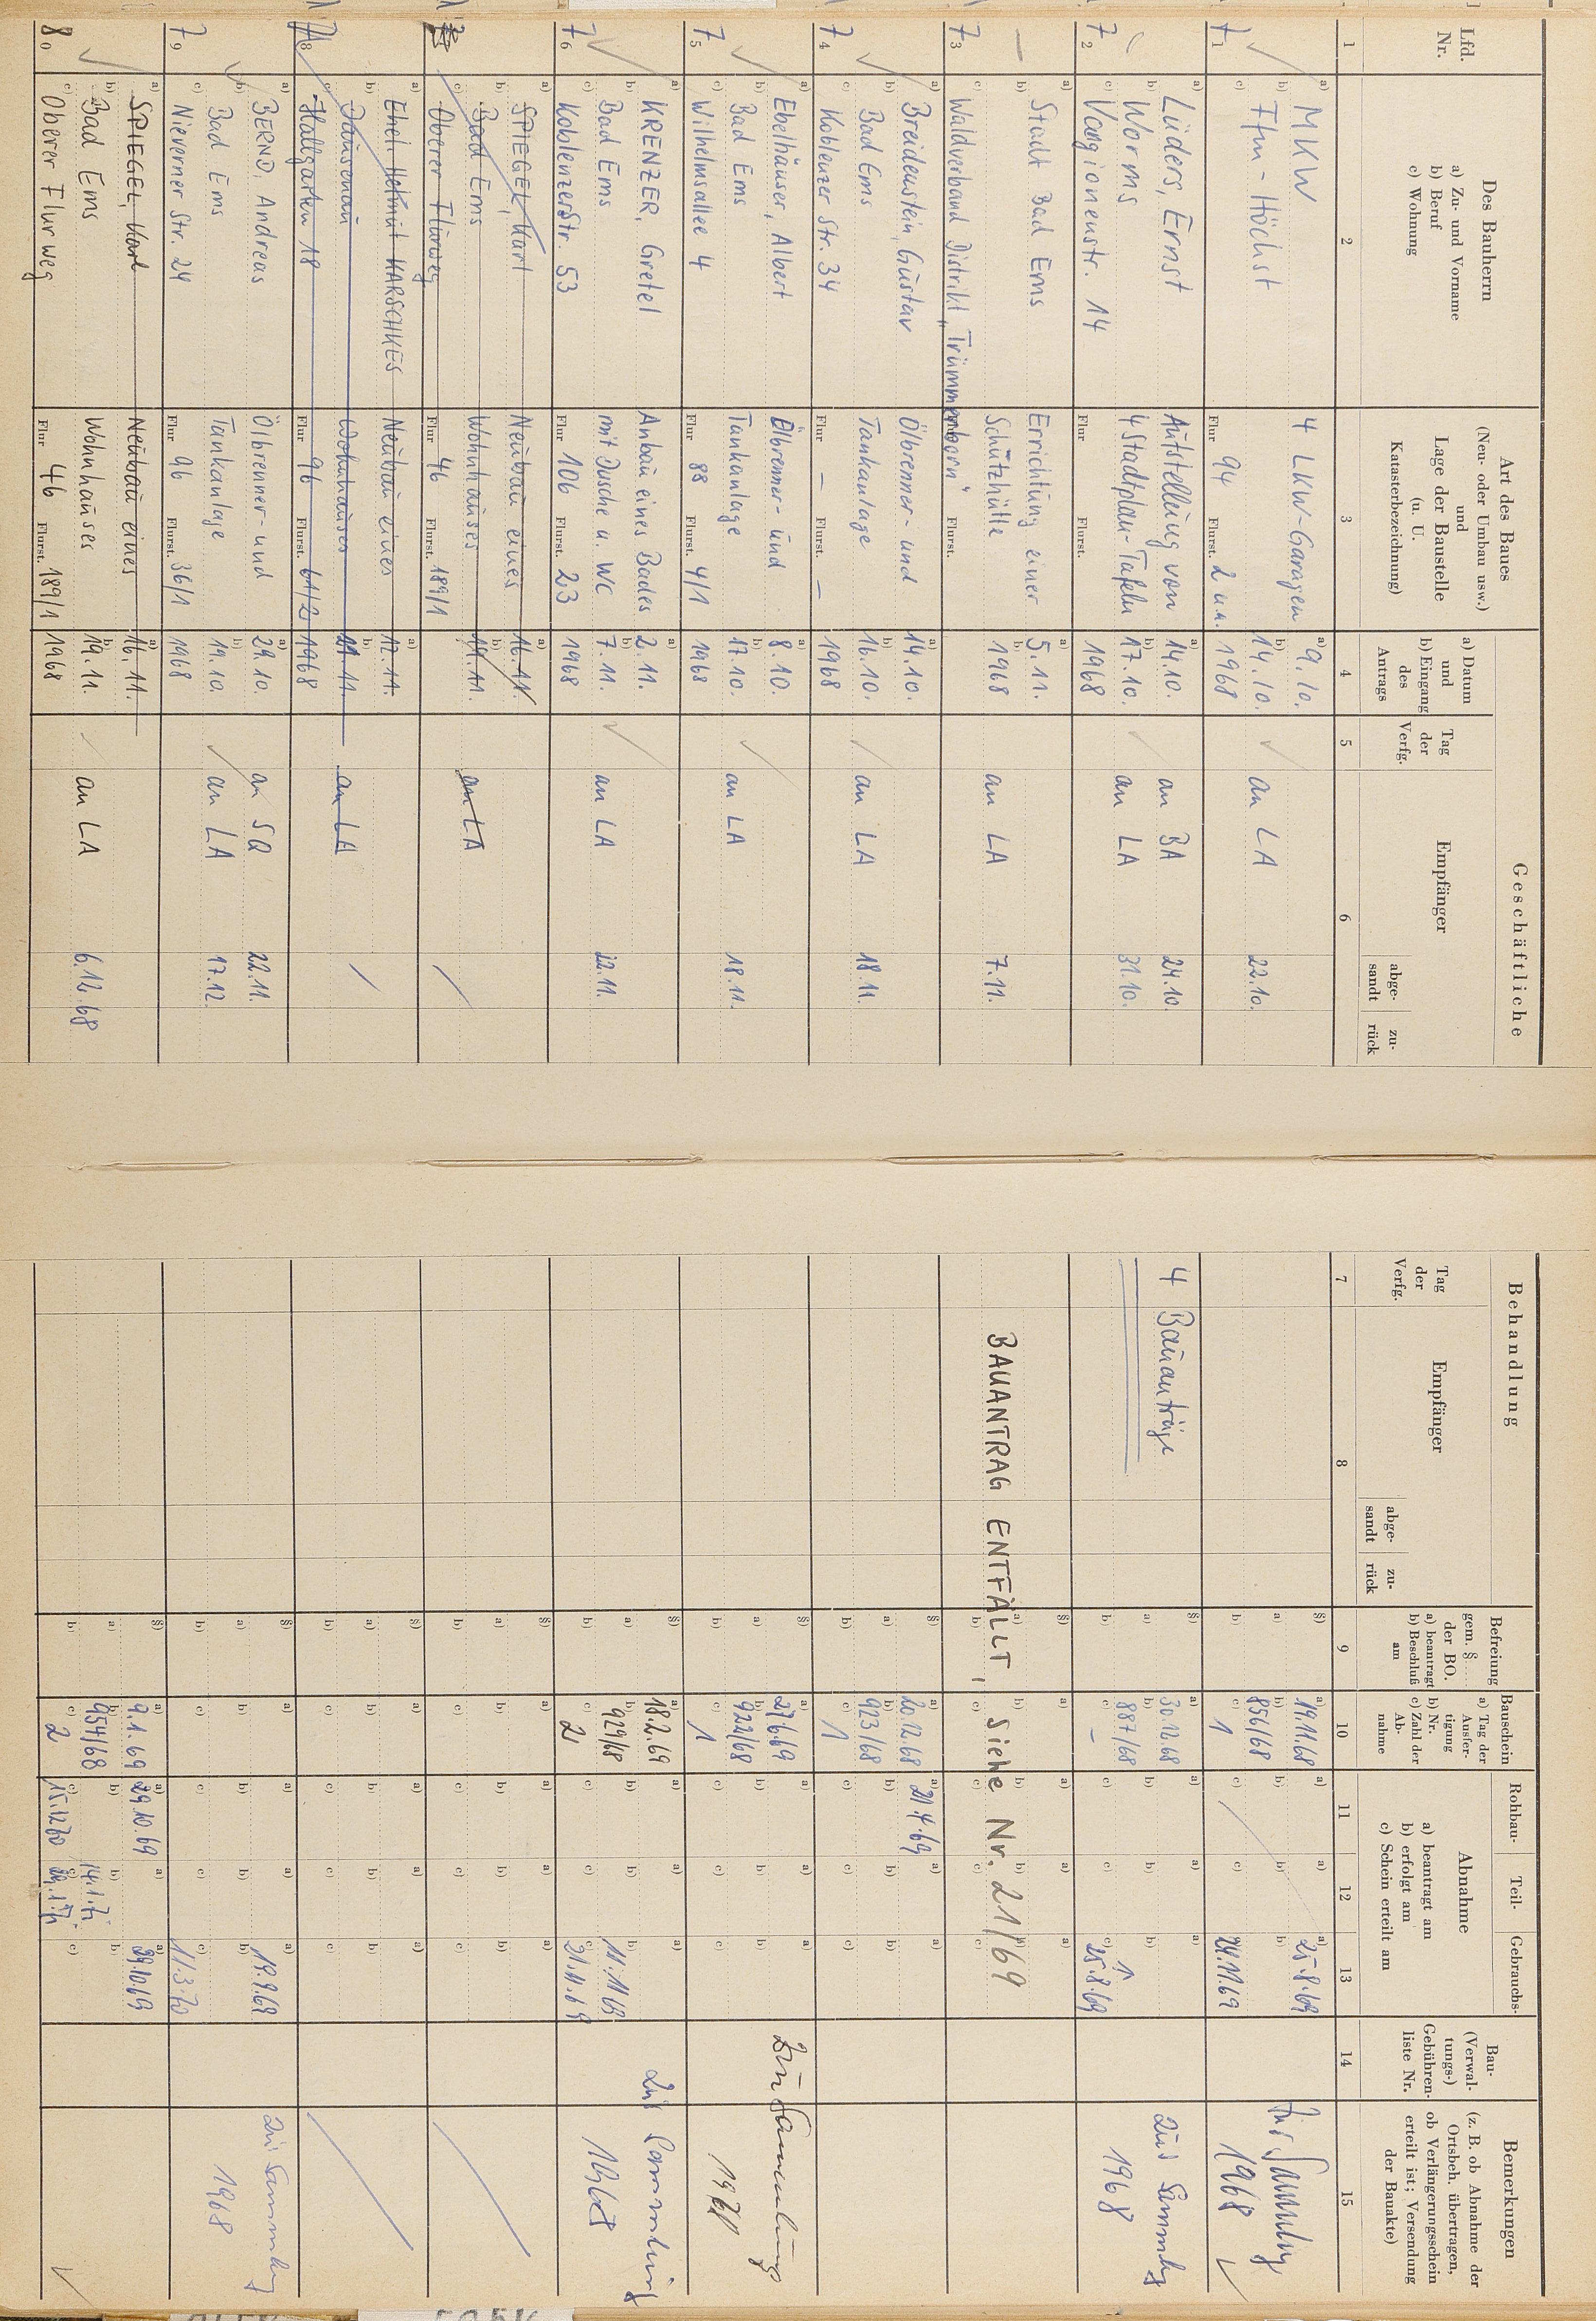 Geschäftliche
Behandlung
Lfd.
Nr.
Des Bauherrn
a) Zu- und Vorname
b) Beruf
c) Wohnung
Art des Baues
(Neu- oder Umbau usw.)
und
Lage der Baustelle
(u. U.
Katasterbezeichnung)
a) Datum
und
b) Eingang
des
Antrags
Tag
der
Verfg.
Empfänger
abge-
sandt
zu-
rück
Tag
der
Verfg.
Empfänger
abge-
sandt
zu-
rück
Befreiung
gem. §
der BO.
a) beantragt
b) Beschluß
am
Bauschein
a) Tag der
Ausfer-
tigung
b) Nr.
c) Zahl der
Ab-
nahme
Rohbau-
Teil-
Gebrauchs-
Abnahme
a) beantragt am
b) erfolgt am
c) Schein erteilt am
Bau-
(Verwal-
tungs-)
Gebühren-
liste Nr.
Bemerkungen
(z. B. ob Abnahme der
Ortsbeh. übertragen,
ob Verlängerungsschein
erteilt ist; Versendung
der Bauakte)
1 2 3 4 5 6 7 8 9 10 11 12 13 14 15
71
a) MKW
b) Ffm-Höchst
4 LKW-Garagen
Flur 94 Flurst. 2 u.a.
a) 9.10.
b) 14.10.
1968
an LA 22.10.
a) 19.11.68
b) 856/68
c) 1
a) 25.8.69
24.11.69
1968
72
a) Lüders, Ernst
b) Worms
c) Vangionenstr. 14
Aufstellung von
4 Stadtplan-Tafeln
Flur Flurst.
a) 14.10.
b) 17.10.
1968
an BA 24.10.
an LA 31.10.
4 Bauanträge
a) 30.12.68
b) 887/68
c) –
1
c) 25.8.69
zur Sammlg
1968
73
a) Stadt Bad Ems
c) Waldverband Distrikt "Trümmerborn"
Errichtung einer
Schutzhütte
Flurst.
a) 5.11.
b)
1968
an LA 7.11.
BAUANTRAG ENTFÄLLT, siehe Nr. 21/69
74
a) Breidenstein, Gustav
b) Bad Ems
c) Koblenzer Str. 34
Ölbrenner- und
Tankanlage
Flur – Flurst. –
a) 14.10.
b) 16.10.
1968
an LA 18.11.
a) 20.12.68
b) 923/68
c) 1
a) 21.4.69
75
a) Ebelhäuser, Albert
b) Bad Ems
c) Wilhelmsallee 4
Ölbrenner- und
Tankanlage
Flur 88 Flurst. 4/1
a) 8.10.
b) 17.10.
1968
an LA 18.11.
b) 922/68
c) 1
zur Sammlung
76
a) KRENZER, Gretel
b) Bad Ems
c) Koblenzer Str. 53
Anbau eines Bades
mit Dusche u. WC
Flur 106 Flurst. 23
a) 2.11.
b) 7.11.
1968
an LA 22.11.
a) 18.2.69
b) 929/68
c) 2
b) 11.11.69
c) 21.11.69
zur Sammlung
1968
a) SPIEGEL, Karl
b) Bad Ems
c) Oberer Flurweg
Neubau eines
Wohnhauses
Flur 46 Flurst. 189/1
a) 16.11.
b) 19.11.
an LA
78
a) Ehel. Helmut KARSCHKES
b) Dausenau
c) Hallgarten 18
Neubau eines
Wohnhauses
Flur 96 Flurst. 61/2
a) 12.11.
b) 19.11.
1968
an LA
79
a) BERND, Andreas
b) Bad Ems
c) Nieverner Str. 24
Ölbrenner- und
Tankanlage
Flur 96 Flurst. 36/1
a) 29.10.
b) 19.10.
1968
an SQ 22.11.
an LA 17.12.
a) 19.9.69
c) 11.3.70
zur Sammlg
1968
80
a) SPIEGEL, Karl
b) Bad Ems
c) Oberer Flurweg
Neubau eines
Wohnhauses
Flur 46 Flurst. 189/1
a) 16.11.
b) 19.11.
1968
an LA 6.12.68
a) 9.1.69
b) 954/68
c) 2
a) 29.10.69
c) 15.12.70
b) 14.1.71
a) 29.10.69